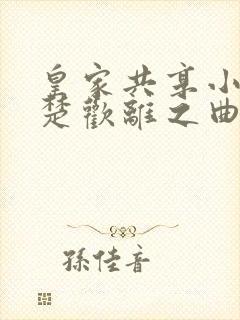 皇家共享小
楚歡離之曲
孫佳音